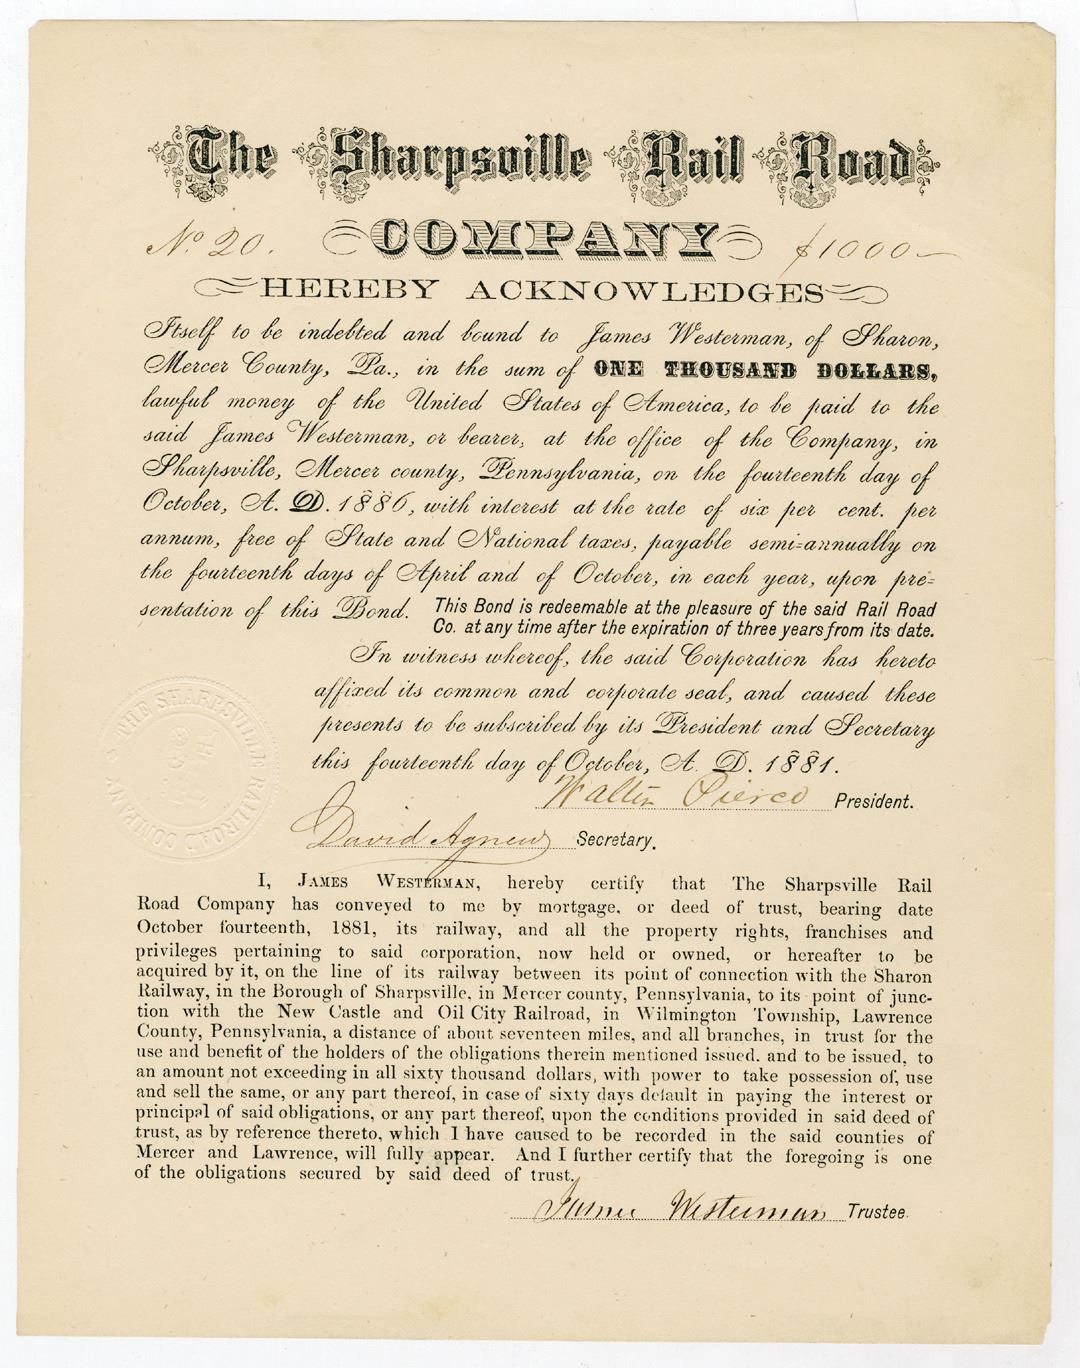 The Sharpsville Rail Road
No. 20. COMPANY $1000
HEREBY ACKNOWLEDGES
Itself to be indebted and bound to James Westerman, of Sharon,
Mercer County, Pa., in the sum of ONE THOUSAND DOLLARS,
lawful money of the United States of America, to be paid to the
said James Westerman, or bearer, at the office of the Company, in
Sharpsville, Mercer county, Pennsylvania, on the fourteenth day of
October, A. D. 1886, with interest at the rate of six per cent. per
annum, free of State and National taxes, payable semi-annually on
the fourteenth days of April and of October, in each year, upon pre-
sentation of this Bond. This Bond is redeemable at the pleasure of the said Rail Road
Co. at any time after the expiration of three years from its date.
In witness whereof, the said Corporation has hereto
affixed its common and corporate seal, and caused these
presents to be subscribed by its President and Secretary
this fourteenth day of October, A. D. 1881.
THE SHARPSVILLE RAILROAD COMPANY
Walter Pierce President.
David Agnew Secretary.
I, JAMES WESTERMAN, hereby certify that The Sharpsville Rail
Road Company has conveyed to me by mortgage, or deed of trust, bearing date
October fourteenth, 1881, its railway, and all the property rights, franchises and
privileges pertaining to said corporation, now held or owned, or hereafter to be
acquired by it, on the line of its railway between its point of connection with the Sharon
Railway, in the Borough of Sharpsville, in Mercer county, Pennsylvania, to its point of junc-
tion with the New Castle and Oil City Railroad, in Wilmington Township, Lawrence
County, Pennsylvania, a distance of about seventeen miles, and all branches, in trust for the
use and benefit of the holders of the obligations therein mentioned issued. and to be issued, to
an amount not exceeding in all sixty thousand dollars, with power to take possession of, use
and sell the same, or any part thereof, in case of sixty days default in paying the interest or
principal of said obligations, or any part thereof, upon the conditions provided in said deed of
trust, as by reference thereto, which I have caused to be recorded in the said counties of
Mercer and Lawrence, will fully appear. And I further certify that the foregoing is one
of the obligations secured by said deed of trust.
James Westerman Trustee.